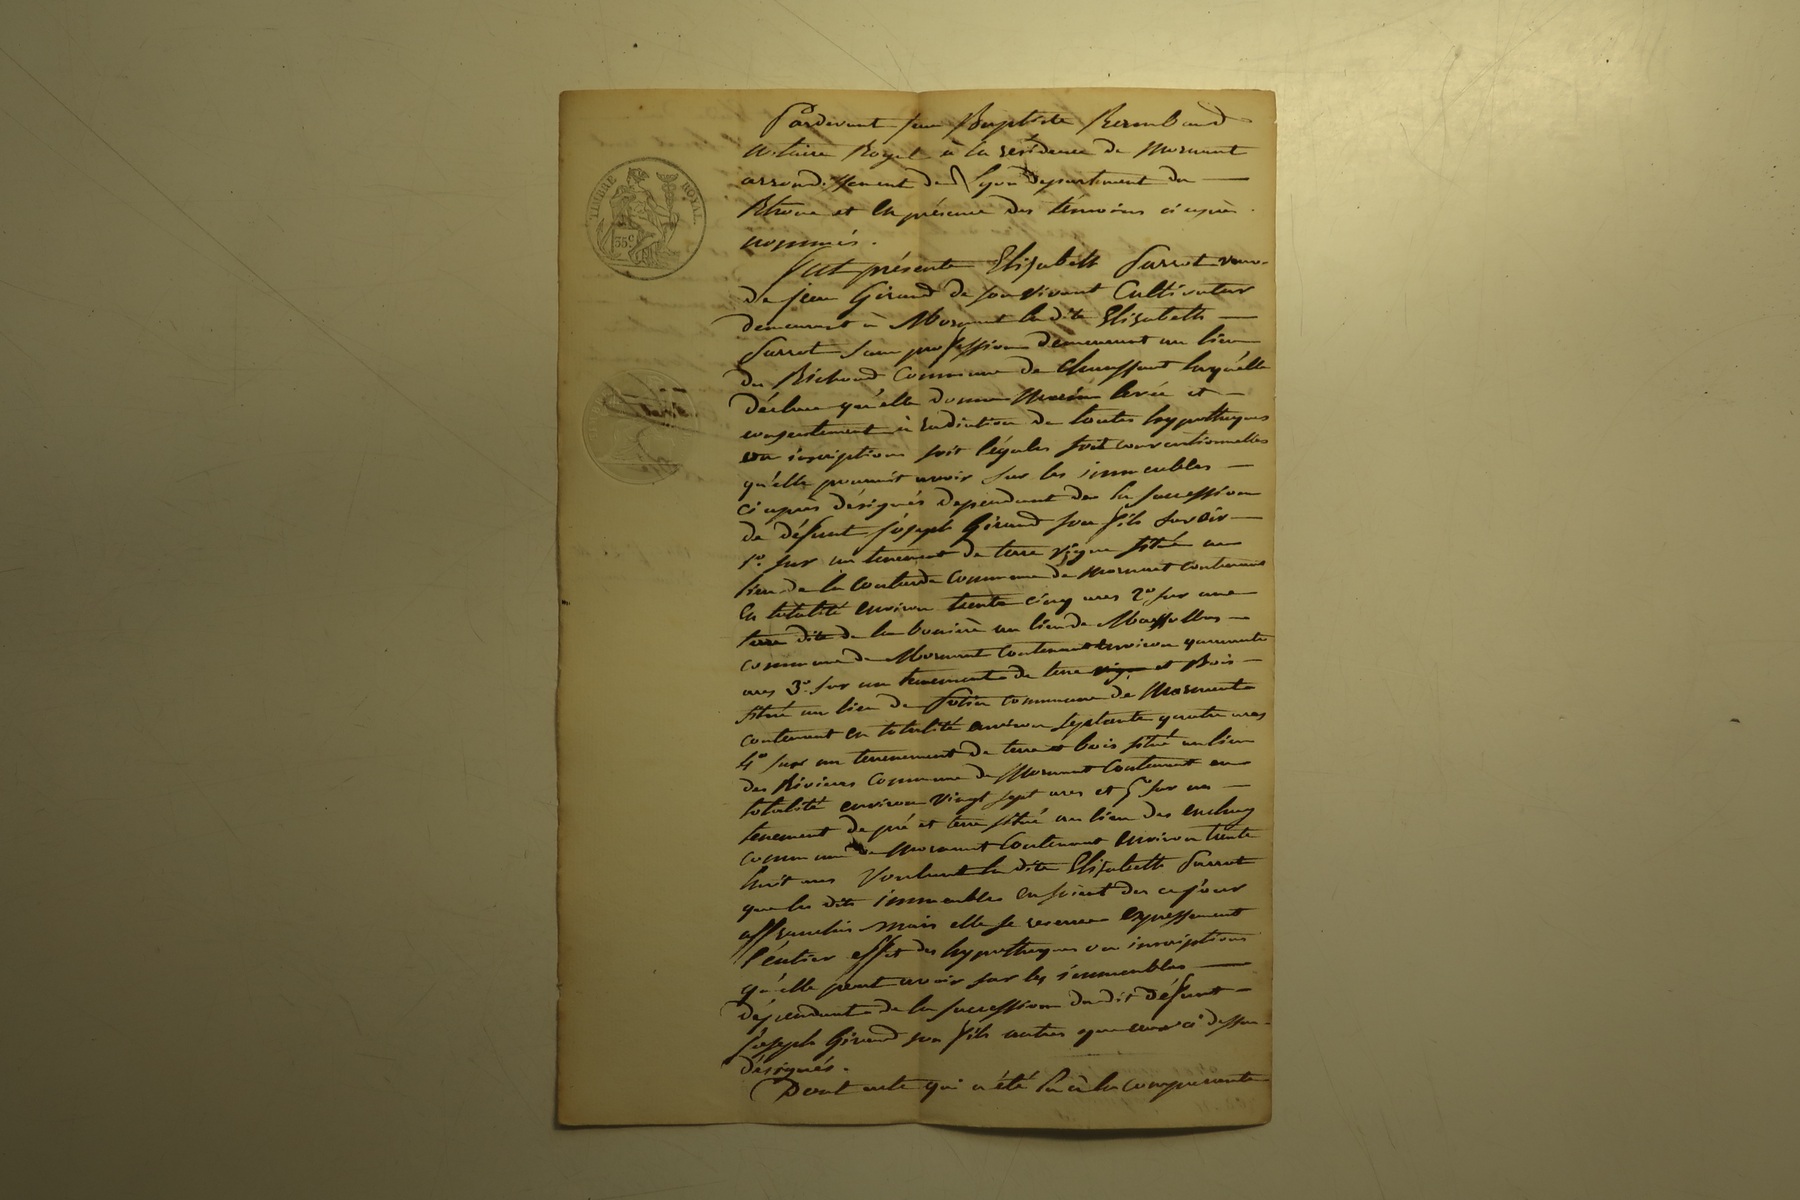 TIMBRE ROYAL
35c
Pardevant Jean Baptiste Rambaud
notaire Royal à la résidence de Mornant
arrondissement de Lyon département du
Rhone et en présence des témoins ci après
nommés.
Fut présente Elizabeth Parrot veuve
de jean Giraud de son vivant Cultivateur
demeurant à Mornant la dite Elizabeth
Parrot sans profession demeurant au lieu
du Richoud Commune de Chaussant laquelle
déclare qu'elle donne main levée et
consentement à radiation de toutes hypothèques
ou inscriptions soit légales soit conventionnelles
qu'elle pourrait avoir sur les immeubles
ci après désignés dépendant de la succession
de défunt joseph Giraud son fils savoir
1o. sur un tenement de terre vigne situé au
lieu de la commune de Mornant contenant
en totalité environ trente cinq ares 2o sur une
terre dite de la au lieu de
commune de Mornant contenant environ quarante
ares 3o. sur un tenement de terre et Bois
situé au lieu de commune de Mornant
contenant en totalité environ septante quatre ares
4o sur un tenement de terre et bois situé au lieu
des Rivieres Commune de Mornant Contenant en
totalité environ vingt sept ares et 5o sur un
tenement de pré et terre situé au lieu des
commune de Mornant Contenant environ trente
huit ares Voulant la dite Elizabeth Parrot
que les dits immeubles en soient des ce jour
affranchis mais elle se reserve expressement
l'entier effet des hypothèques ou inscriptions
qu'elle peut avoir sur les immeubles
dépendant de la succession du dit défunt
joseph Giraud son fils autres que ceux ci dessus
désignés.
Dont acte qui a été lu à la comparante